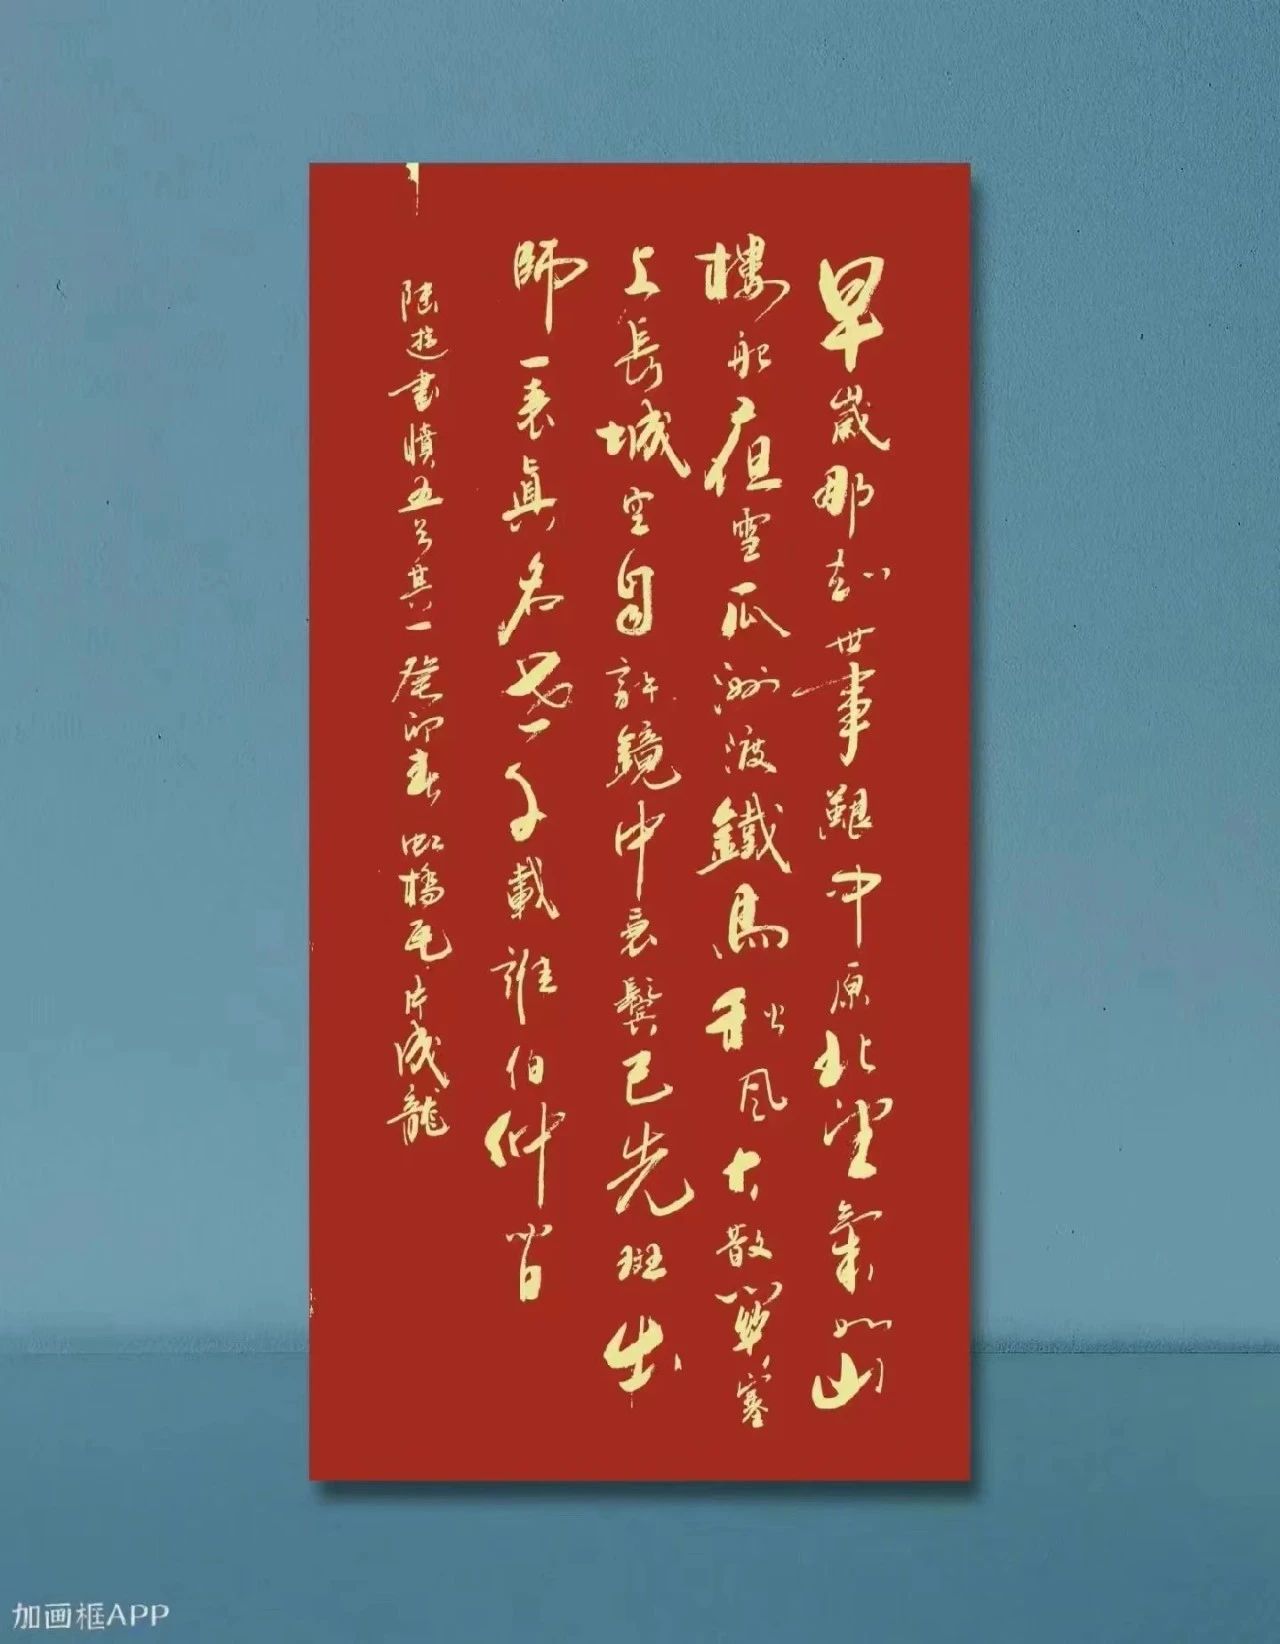 早歲那知世事艱中原北望氣如山
樓船夜雪瓜洲渡鐵馬秋風大散關塞
上長城空自許鏡中衰鬢已先斑出
師一表眞名世千載誰伯仲間
陸游書憤五首其一癸卯春虹橋毛片成龍
加画框APP